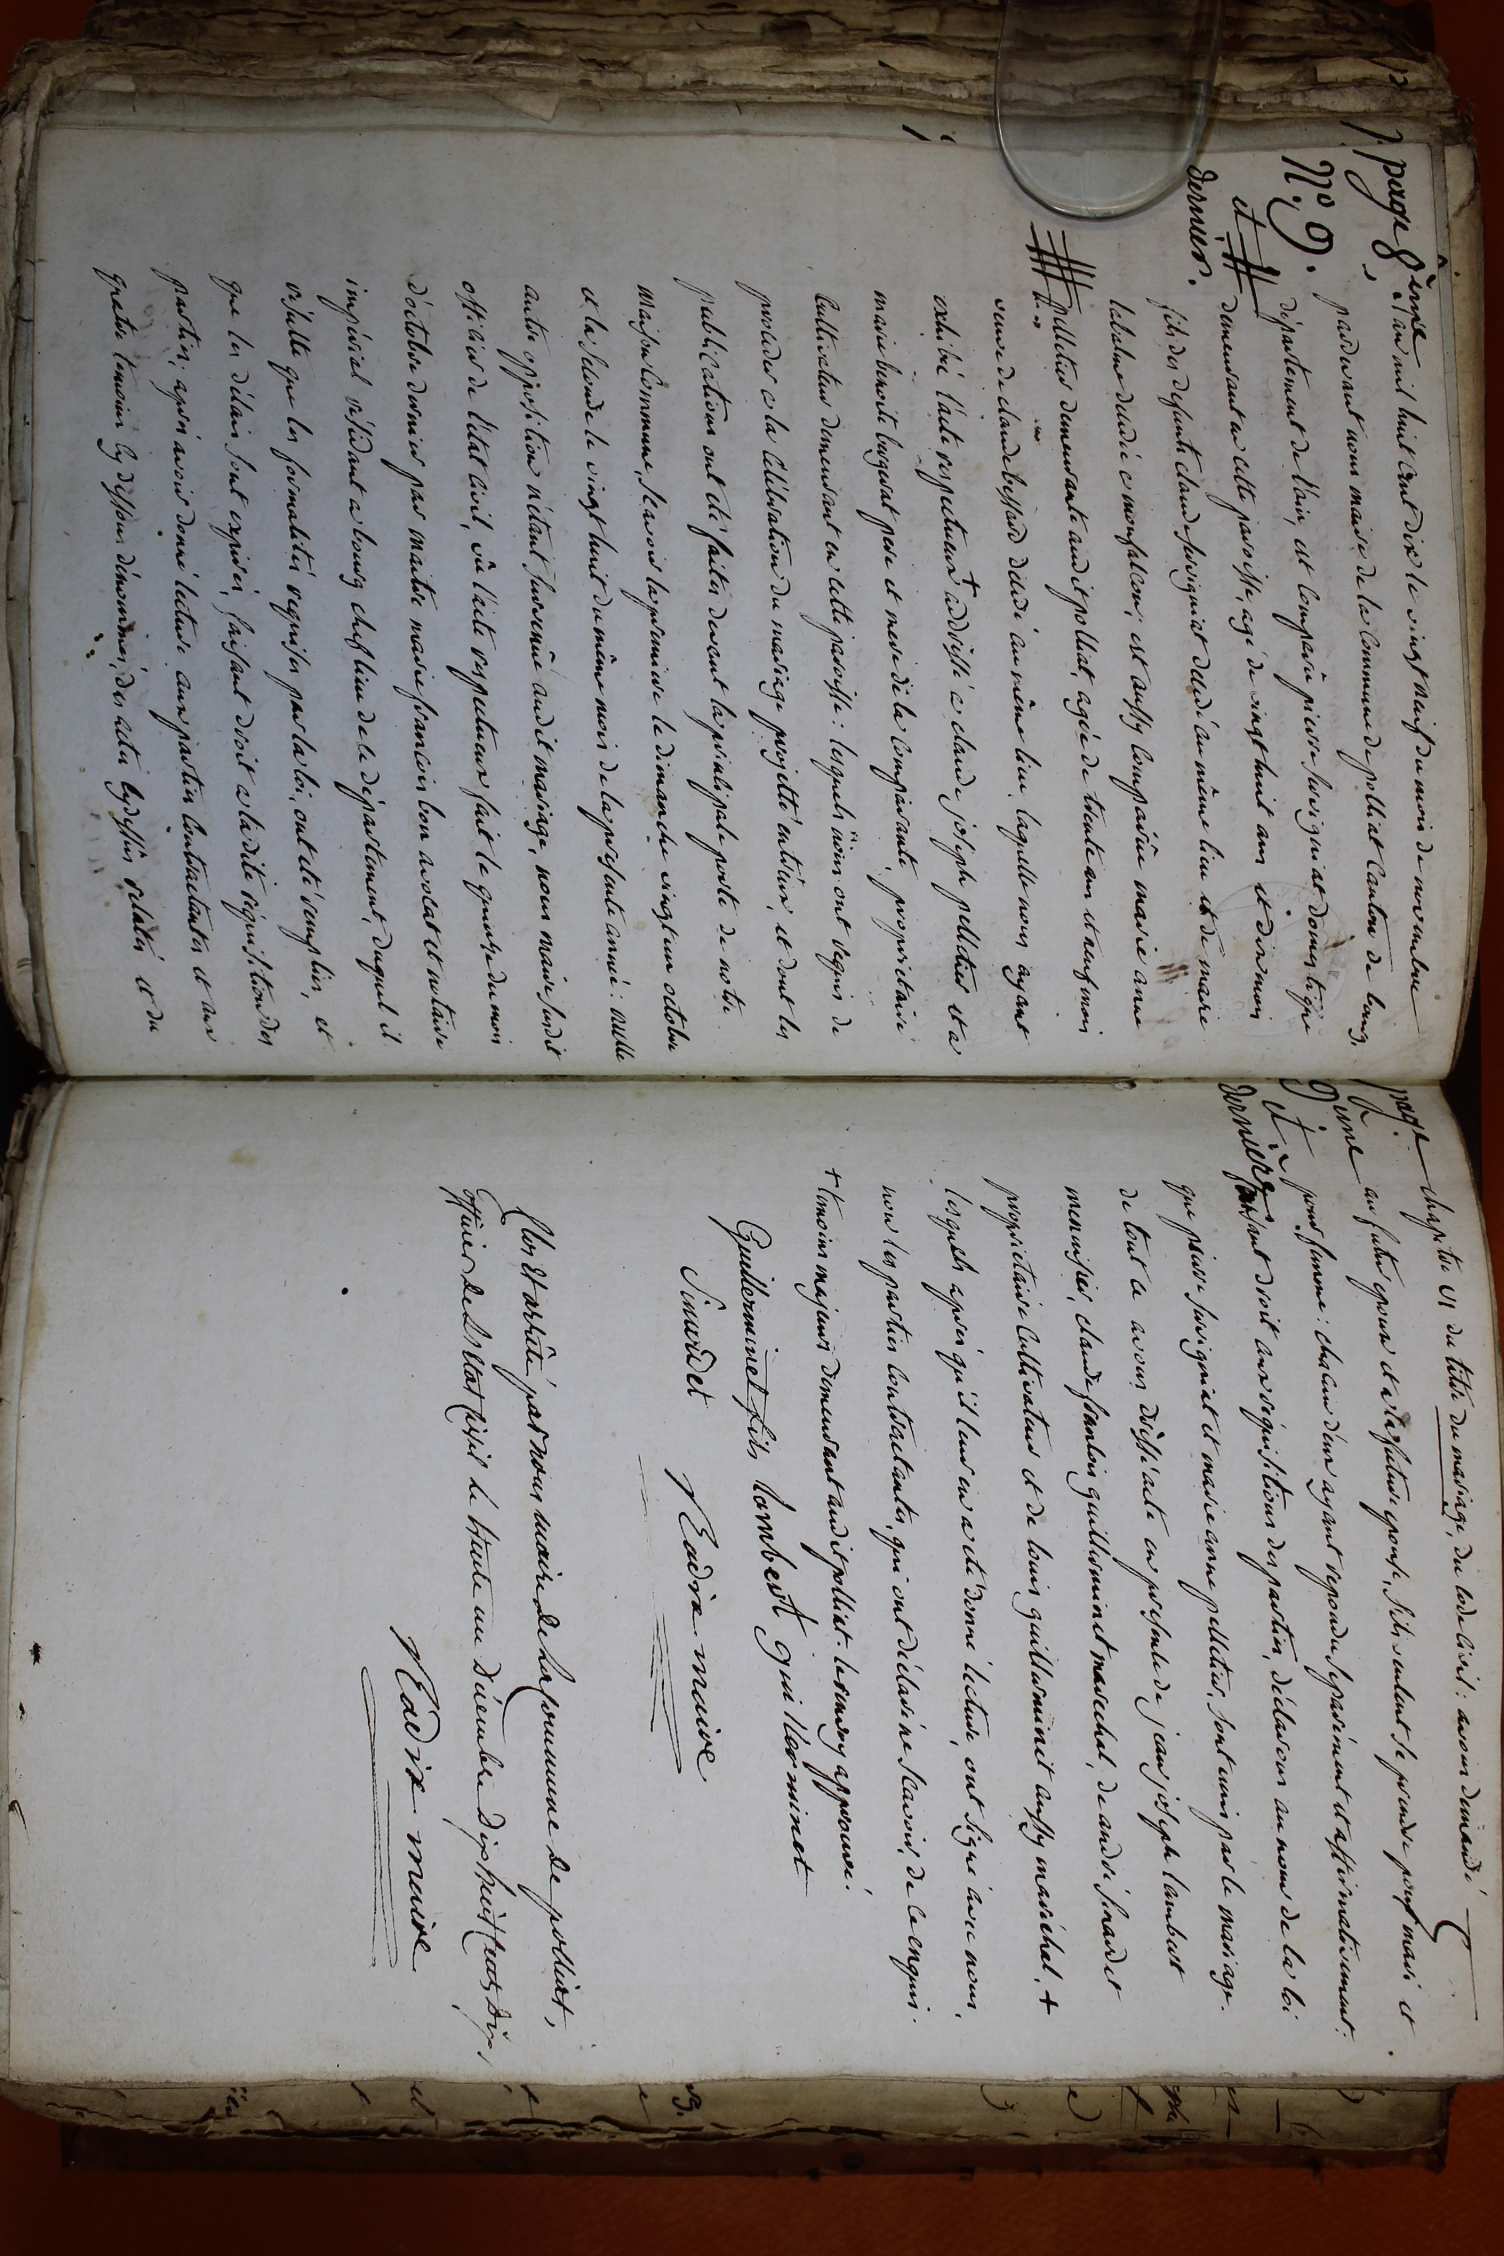 page 8ème
N.° 9.
et
dernier.
L'an mil huit cent dix le vingt neuf du mois de novembre
pardevant nous maire de la commune de polliat canton de bourg,
département de l'ain, est comparu pierre suivignat domestique
demeurant en cette paroisse, agé de vingt huit ans et dix mois
fils des defunts claude suivignat décédé au même lieu et de marie
labalme décédé a monfalcon; est aussy comparüe marie anne
pelletier demeurante audit polliat, agée de trente ans et neuf mois
veuve de claude bussard décédé au même lieu, laquelle nous ayant
exhibé l'acte respectueux + addressé a claude joseph pelletier et a
marie benoite page pere et mere de la comparante, propriétaire
cultivateur demeurant en cette paroisse: lesquels nous ont requis de
proceder a la célébration du mariage projetté entr'eux, et dont les
publications ont été faites devant la principale porte de notre
maison commune, scavoir la premiere le dimanche vingt un octobre
et la seconde le vingt huit du même mois de la presente année: nulle
autre opposition n'étant survenüe audit mariage, nous maire susdit
officier de l'état civil, vû l'acte respectueux fait le quinze du mois
d'octobre dernier par maitre marie françois bon avocat et notaire
impérial résidant a bourg chef lieu de ce département, duquel il
résulte que les formalités requises par la loi, ont été remplies, et
que les délais sont expirés, faisant droit a la dite réquisition des
parties; après avoir donné lecture aux parties contractantes et aux
quatre temoins cy dessous dénommés, des actes cydessus relatés et du
page
9ème
et
dernière
chapitre VI du titre du mariage, du code civil: avons demandé
au futur epoux et a la future epouse, s'ils veulent se prendre pour mari et
pour femme: chacun d'eux ayant repondu séparément et affirmativement:
faisant droit aux réquisitions des parties, déclarons au nom de la loi
que pierre suivignat et marie anne pelletier, sont unis par le mariage.
de tout ce avons dressé acte en presence de jean joseph lambert
menuisier, claude françois guillerminet marechal, de andré sinardet
propriétaire cultivateur et de louis guillerminet aussy maréchal, +
lesquels après qu'il leur en a été donné lecture, ont signé avec nous,
non les parties contractantes, qui ont déclaré ne scavoir, de ce enquis.
+ témoins majeurs demeurant audit polliat. le renvoy approuvé.
Guillerminet fils lambert guillerminet
Sinardet Eadix maire
Clos et arrêté par nous maire de la commune de polliat,
officier de l'Etat Civil le trente un décembre dix huit Cent dix,
Eadix maire